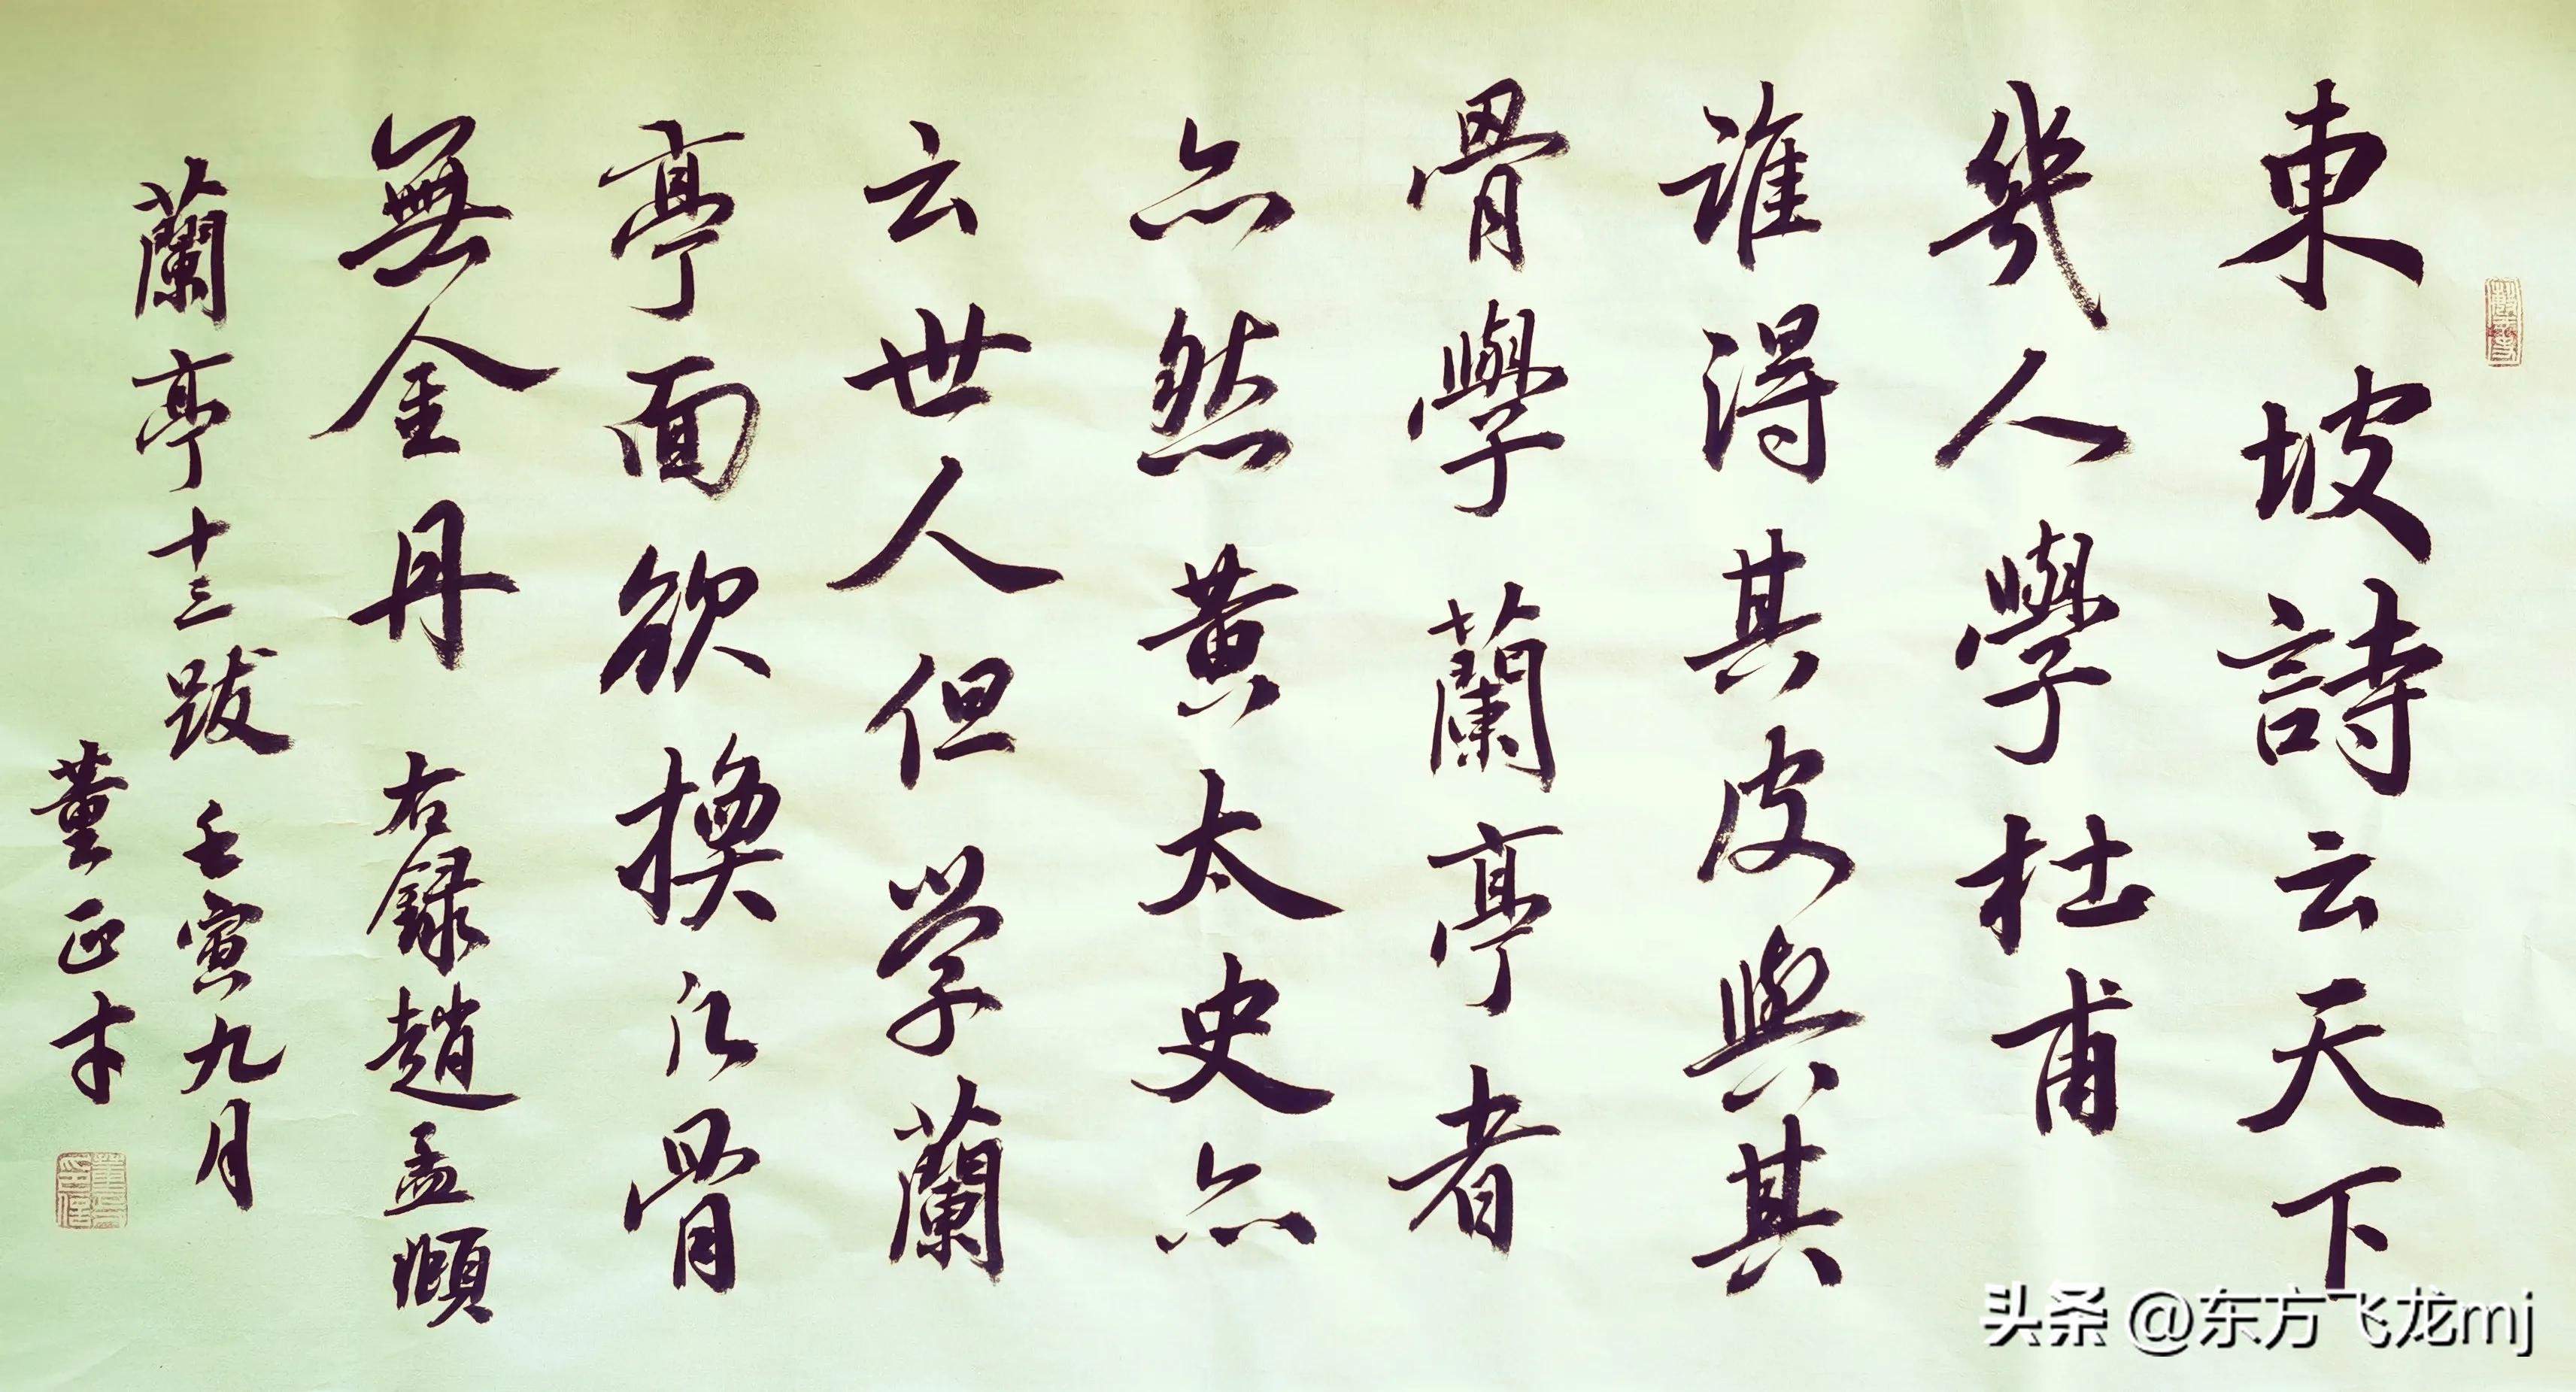 東坡詩云天下
幾人學杜甫
誰得其皮與其
骨學蘭亭者
亦然黃太史亦
云世人但学蘭
亭面欲換凡骨
無金丹 右録趙孟頫
蘭亭十三跋 壬寅九月
董正
头条 @东方飞龙mj